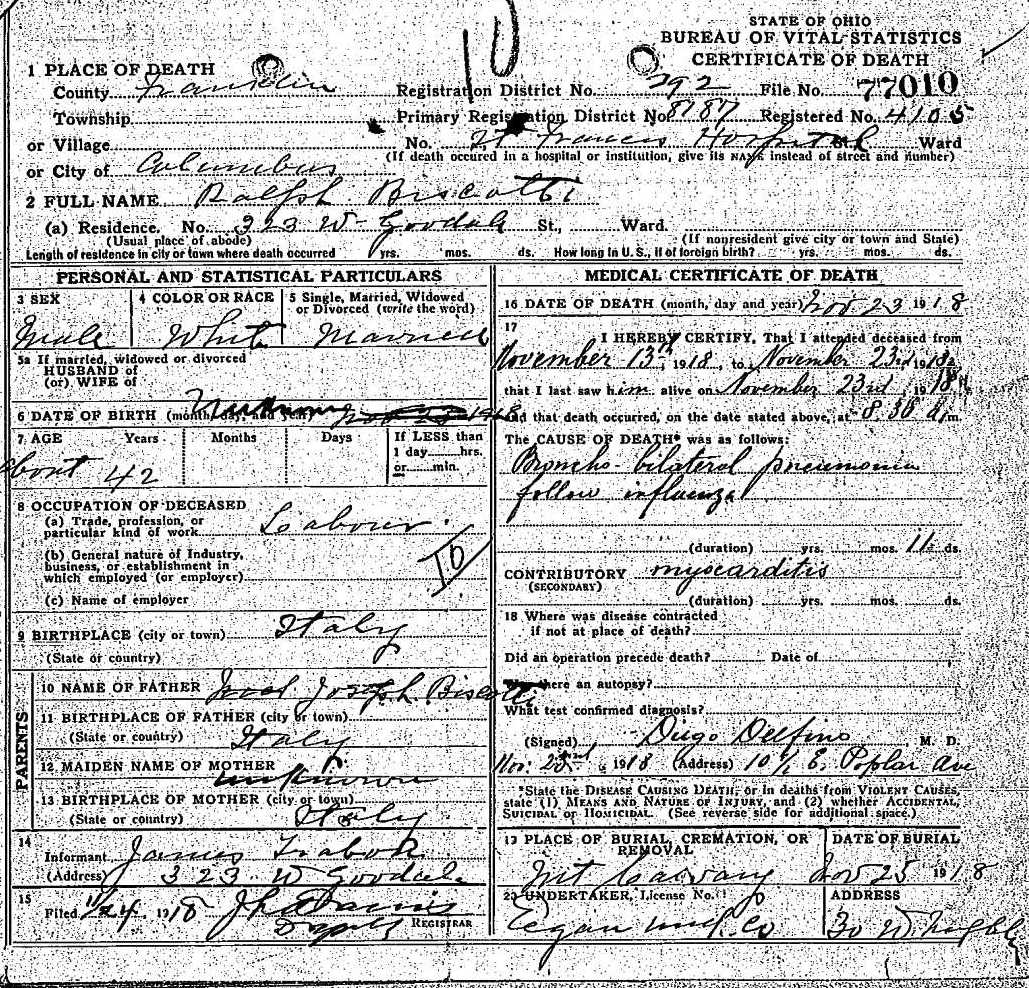 STATE OF OHIO
BUREAU OF VITAL STATISTICS
CERTIFICATE OF DEATH
1 PLACE OF DEATH
County Franklin Registration District No. 392 File No. 77010
Township Primary Registration District No. 8187 Registered No. 4105
or Village No. St Francis Hospital St. Ward
(If death occured in a hospital or institution, give its NAME instead of street and number)
or City of Columbus
2 FULL NAME Ralph Biscotti
(a) Residence. No. 323 W Goodale St., Ward.
(Usual place of abode) (If nonresident give city or town and State)
Length of residence in city or town where death occurred yrs. mos. ds. How long in U. S., if of foreign birth? yrs. mos. ds.
PERSONAL AND STATISTICAL PARTICULARS
3 SEX 4 COLOR OR RACE 5 Single, Married, Widowed
or Divorced (write the word)
Male White Married
5a If married, widowed or divorced
HUSBAND of
(or) WIFE of
6 DATE OF BIRTH (month, day and year)
7 AGE Years Months Days If LESS than
1 day hrs.
or min.
About 42
8 OCCUPATION OF DECEASED
(a) Trade, profession, or
particular kind of work Labour
(b) General nature of Industry,
business, or establishment in
which employed (or employer)
10
(c) Name of employer
9 BIRTHPLACE (city or town) Italy
(State or country)
PARENTS
10 NAME OF FATHER Joseph Biscotti
11 BIRTHPLACE OF FATHER (city or town)
(State or country) Italy
12 MAIDEN NAME OF MOTHER
unknown
13 BIRTHPLACE OF MOTHER (city or town)
(State or country) Italy
14
Informant James
(Address) 323 W Goodale
15
Filed 11/24, 1918
Deputy REGISTRAR
MEDICAL CERTIFICATE OF DEATH
16 DATE OF DEATH (month, day and year) Nov 23 1918
17
I HEREBY CERTIFY, That I attended deceased from
November 13th, 1918, to November 23rd, 1918
that I last saw him alive on November 23rd, 1918
and that death occurred, on the date stated above, at 8 30 a m.
The CAUSE OF DEATH* was as follows:
Broncho-bilateral pneumonia
follow influenza
(duration) yrs. mos. 11 ds.
CONTRIBUTORY myocarditis
(SECONDARY)
(duration) yrs. mos. ds.
18 Where was disease contracted
if not at place of death?
Did an operation precede death? Date of
Was there an autopsy?
What test confirmed diagnosis?
(Signed) Dugo Delfino M. D.
Nov. 23rd, 1918 (Address) 10½ E. Poplar Ave
*State the DISEASE CAUSING DEATH, or in deaths from VIOLENT CAUSES,
state (1) MEANS AND NATURE OF INJURY, and (2) whether ACCIDENTAL,
SUICIDAL or HOMICIDAL. (See reverse side for additional space.)
19 PLACE OF BURIAL, CREMATION, OR
REMOVAL
DATE OF BURIAL
Mt Calvary Nov 25 1918
20 UNDERTAKER, License No. ADDRESS
Egan Und. Co